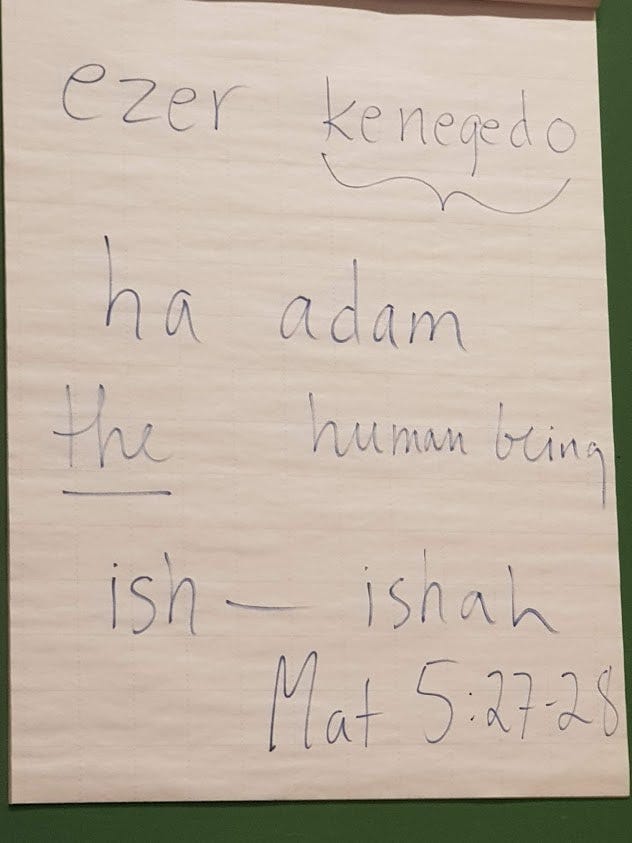 ezer kenegedo
ha adam
the human being
ish — ishah
Mat 5:27-28